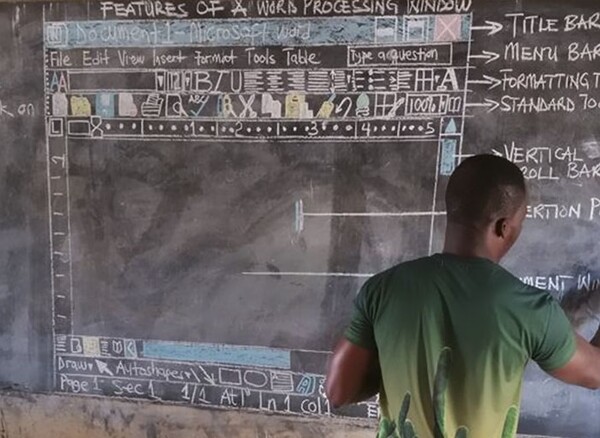 FEATURES OF A WORD PROCESSING WINDOW
Document 1 - Microsoft Word
TITLE BAR
File Edit View Insert Format Tools Table
Type a question
MENU BAR
A A
B I U
A
FORMATTING T
k on
ABC
100%
STANDARD TOO
1 2 3 4 5
VERTICAL
ROLL BAR
ERTION P
MENT WIN
Draw Autoshapes
Page 1 Sec 1 1/1 At 1" Ln 1 Col 1